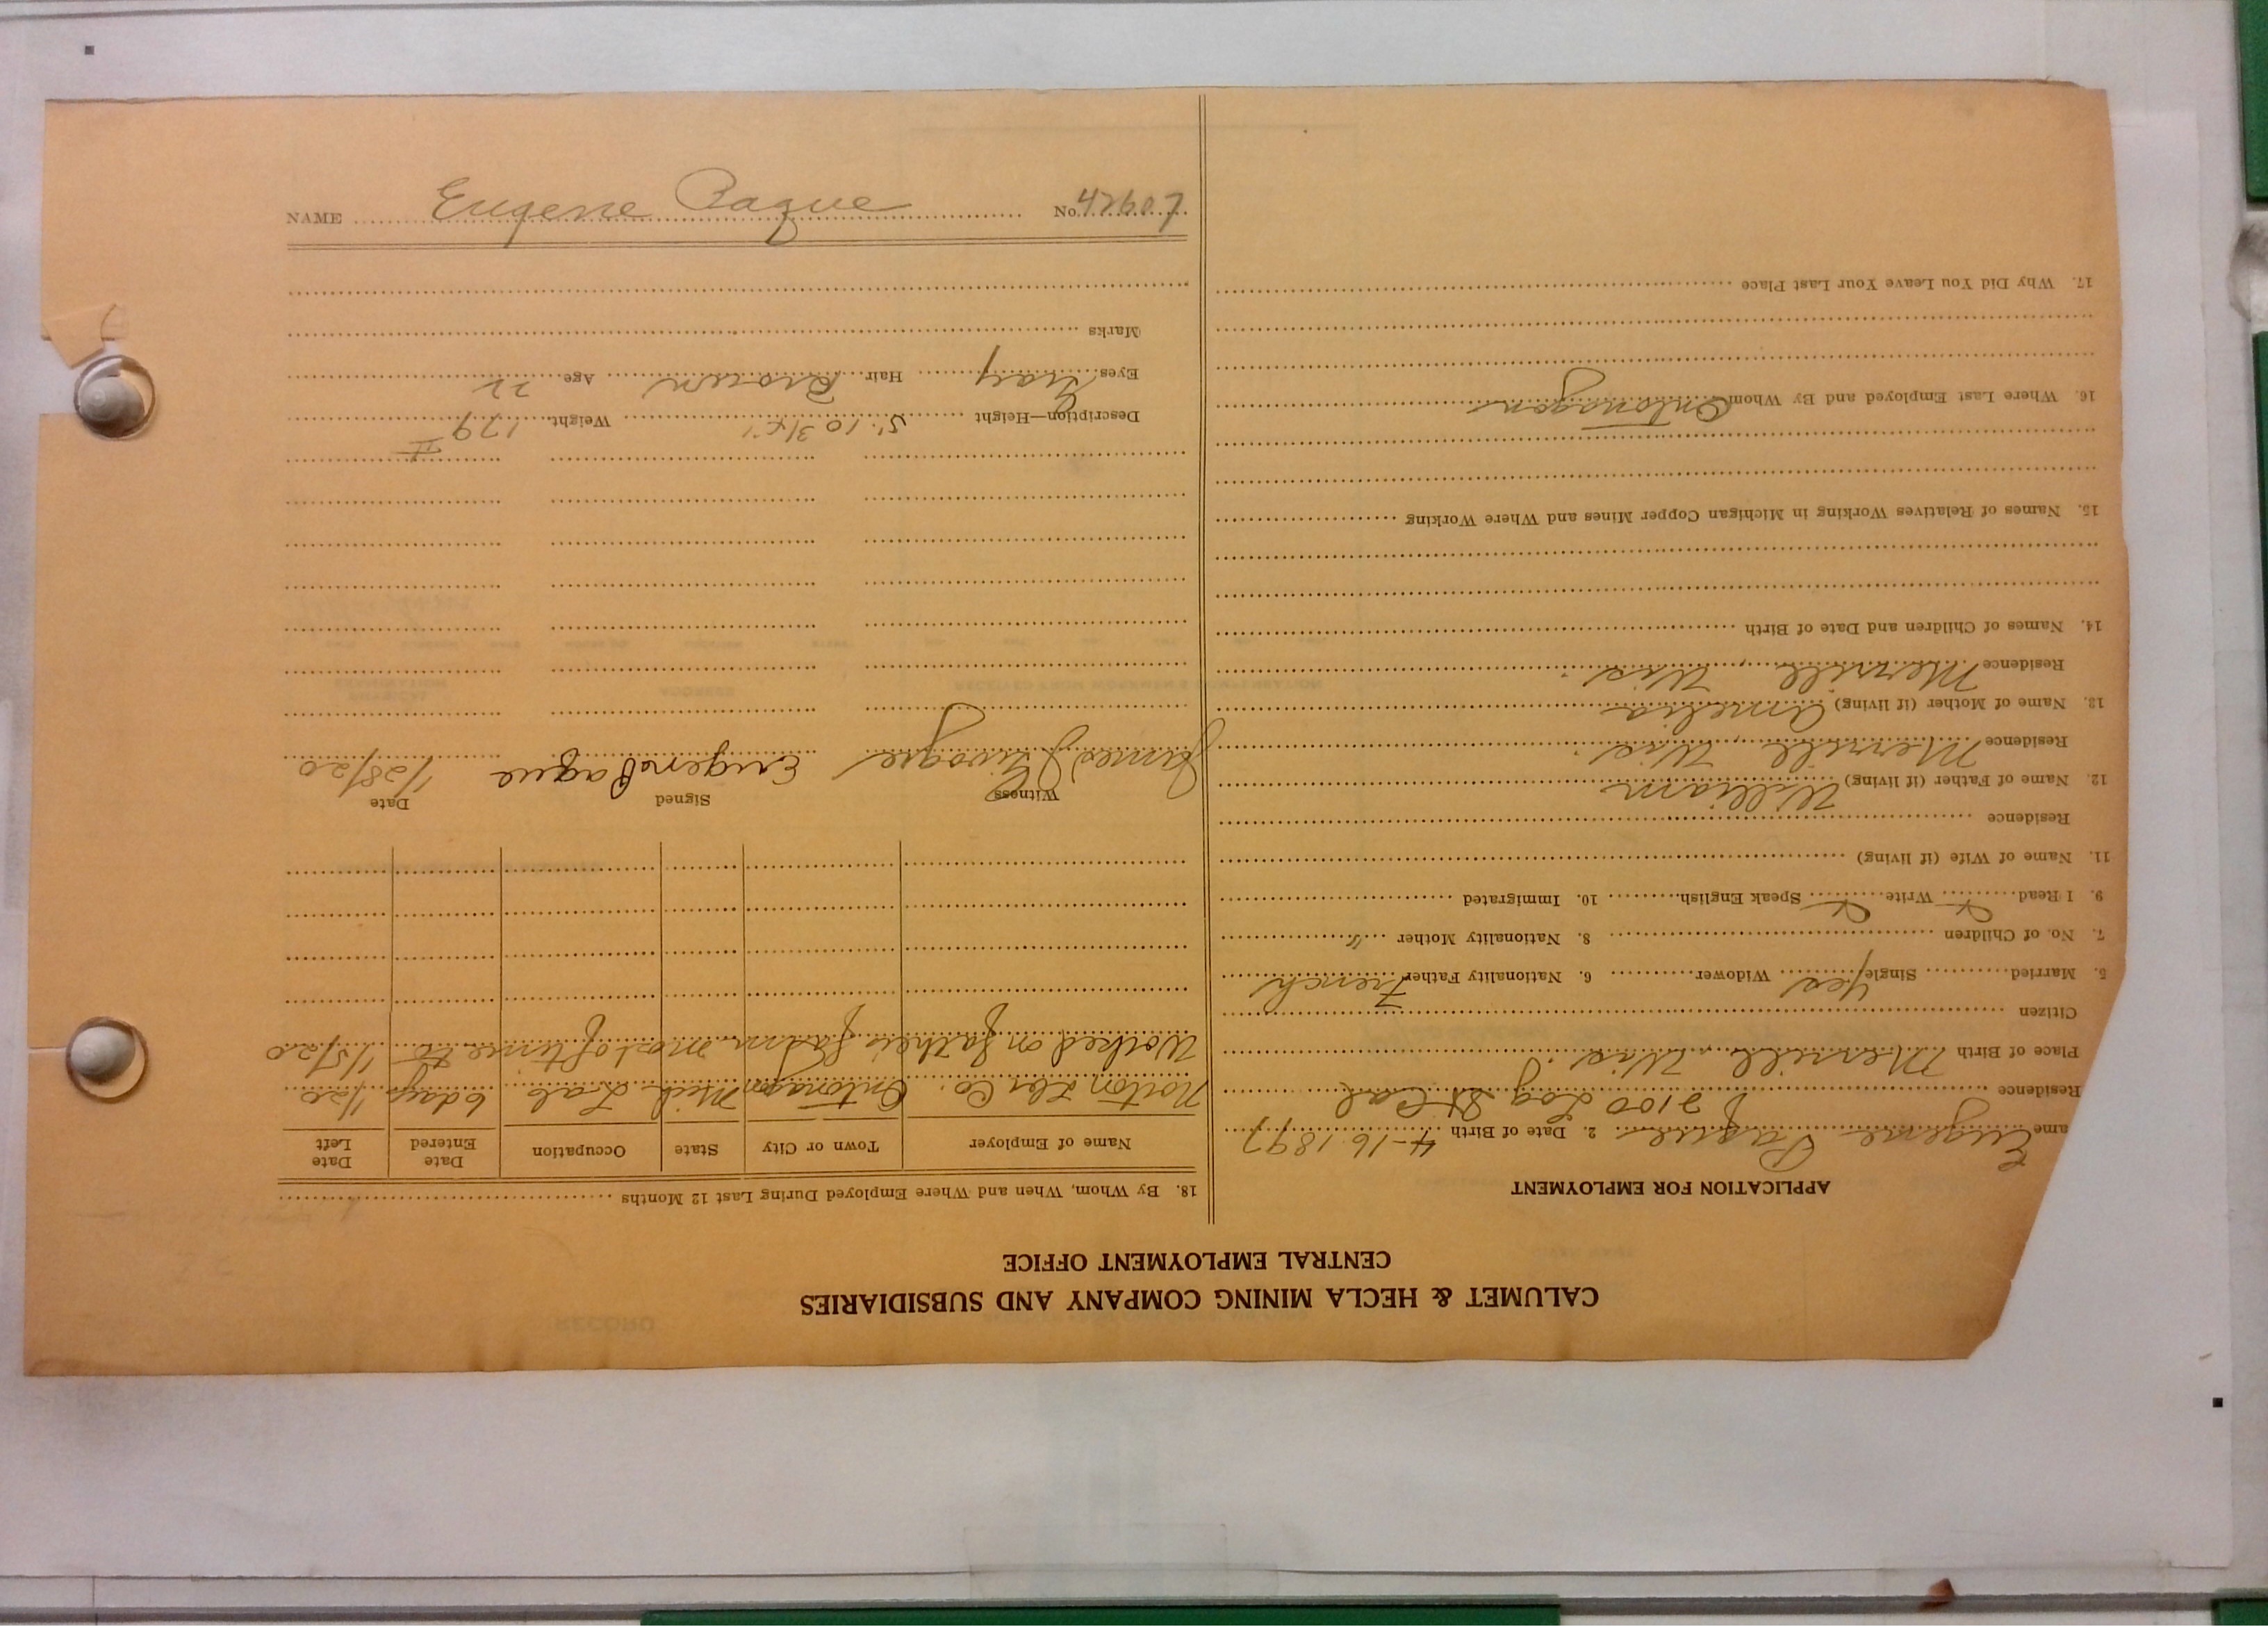 CALUMET & HECLA MINING COMPANY AND SUBSIDIARIES
CENTRAL EMPLOYMENT OFFICE
APPLICATION FOR EMPLOYMENT
ame Eugene Paque 2. Date of Birth 4-16-1897
Residence 2100 Log St Cal
Place of Birth Merrill, Wis.
Citizen
5. Married Single Yes Widower 6. Nationality Father French
7. No. of Children 8. Nationality Mother "
9. I Read Write Speak English 10. Immigrated
11. Name of Wife (if living)
Residence
12. Name of Father (if living) William
Residence Merrill, Wis.
13. Name of Mother (if living) Amelia
Residence Merrill, Wis.
14. Names of Children and Date of Birth
15. Names of Relatives Working in Michigan Copper Mines and Where Working
16. Where Last Employed and By Whom Ontonagon
17. Why Did You Leave Your Last Place
18. By Whom, When and Where Employed During Last 12 Months
Name of Employer Town or City State Occupation Date Entered Date Left
Norton Lbr Co. Ontonagon Mich Lab 6 days 1/20
Worked on father's farm most of time to 1/5/20
Witness Signed Date
James Eugene Paque 1/28/20
Description—Height 5' 10 3/4" Weight 179
Eyes Gray Hair Brown Age 22
Marks
NAME Eugene Paque No. 42607
RECORD